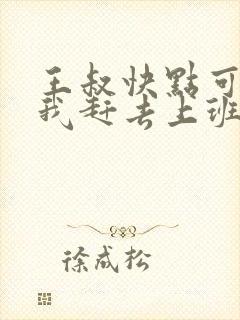 王叔快點可
我赶去上班
徐成松